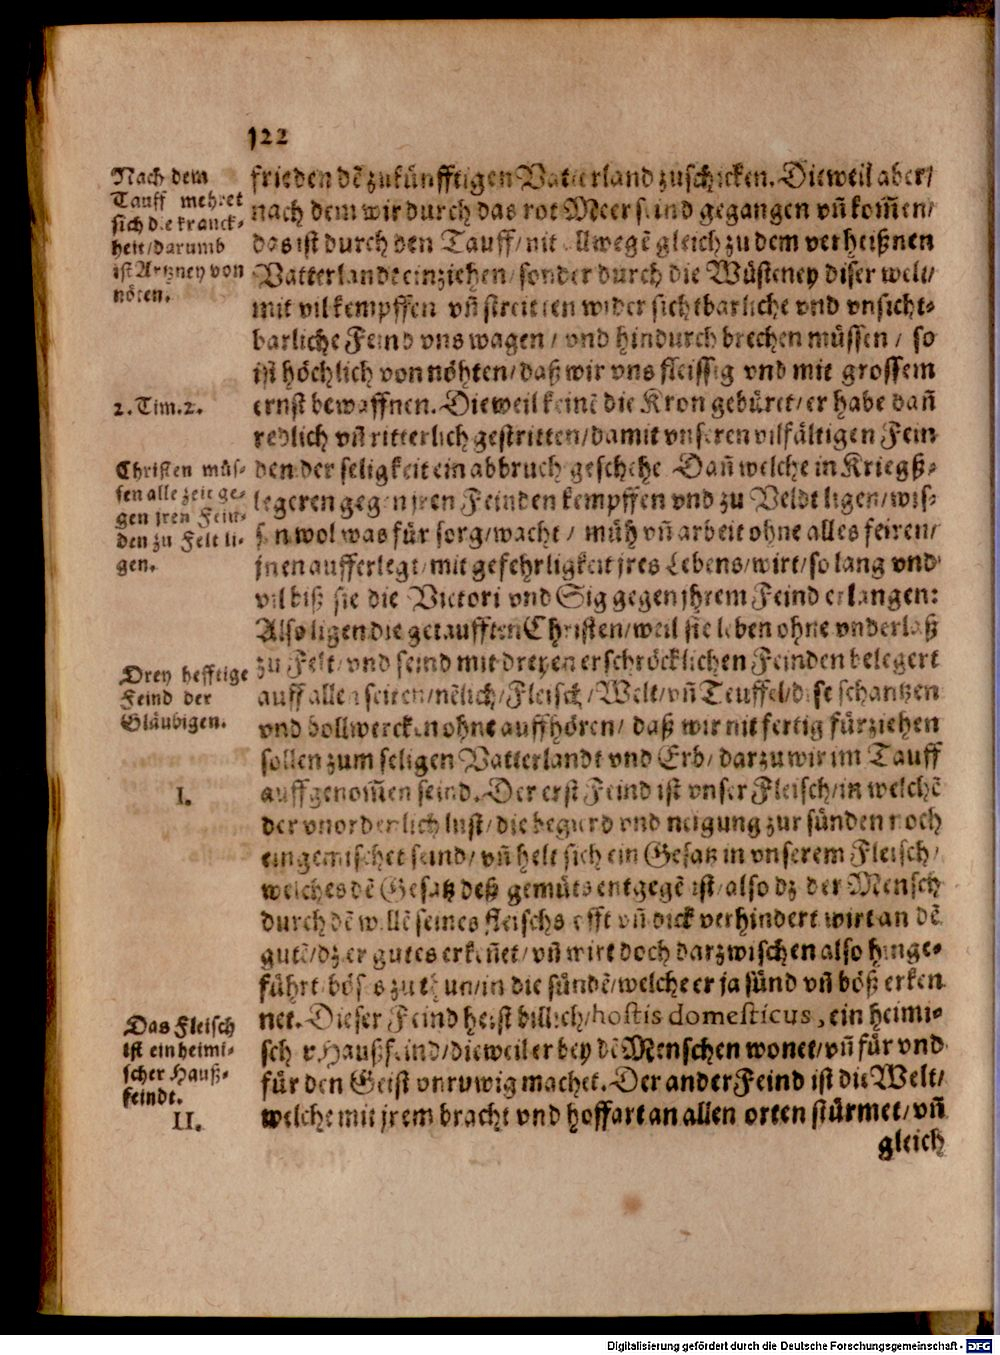 122
Nach dem
Tauff mehret
sich die kranck-
heit/darumb
ist Artzney von
nöten.
frieden dẽ zukünfftigen Vatterland zuschicken. Dieweil aber/
nach dem wir durch das rot Meer seind gegangen vñ kom̃en/
das ist durch den Tauff/nit allwegẽ gleich zu dem verheißnen
Vatterlandt einziehen/sonder durch die Wüsteney diser welt/
mit vil kempffen vñ streitten wider sichtbarliche vnd vnsicht-
barliche Feind vns wagen/ vnd hindurch brechen müssen/ so
ist höchlich von nöhten/daß wir vns fleissig vnd mit grossem
2. Tim. 2.
ernst bewaffnen. Dieweil keinẽ die Kron gebüret/er habe dañ
redlich vñ ritterlich gestritten/damit vnseren vilfältigen Fein
Christen müs-
sen alle zeit ge-
gen jren Fein-
den zu Felt li-
gen.
den der seligkeit ein abbruch geschehe Dañ welche in Kriegß-
legeren gegen jren Feinden kempffen vnd zu Veldt ligen/wis-
sen wol was für sorg/wacht/ müh vñ arbeit ohne alles feiren/
jnen aufferlegt/mit gefehrligkeit jres Lebens/wirt/so lang vnd
vil biß sie die Victori vnd Sig gegen jhrem Feind erlangen:
Also ligen die getaufften Christen/weil sie leben ohne vnderlaß
zu Felt/vnd seind mit dreyen erschröcklichen Feinden belegert
Drey hefftige
Feind der
Gläubigen.
auff allen seiten/nẽlich/Fleisch/Welt/vñ Teuffel/dise schantzen
vnd bollwercken ohne auffhören/ daß wir nit fertig fürziehen
sollen zum seligen Vatterlandt vnd Erb/darzu wir im Tauff
I.
auffgenom̃en seind. Der erst Feind ist vnser Fleisch/in welchẽ
der vnordenlich lust/die begird vnd neigung zur sünden noch
eingemischet seind/vñ helt sich ein Gesatz in vnserem Fleisch/
welches dẽ Gesatz deß gemüts entgegẽ ist/also dz der Mensch
durch dẽ willẽ seines fleischs offt vñ dick verhindert wirt an dẽ
gutẽ/dz er gutes erkeñet/vñ wirt doch darzwischen also hinge-
führt böses zu thun/in die sündẽ/welche er ja sünd vñ böß erken
Das Fleisch
ist ein heimi-
scher Hauß-
feindt.
net. Dieser Feind heist billich/hostis domesticus, ein heimi-
scher Haußfeind/dieweil er bey dẽ Menschen wonet/vñ für vnd
für den Geist vnruwig machet. Der ander Feind ist die Welt/
II.
welche mit jrem bracht vnd hoffart an allen orten stürmet/vñ
gleich
Digitalisierung gefördert durch die Deutsche Forschungsgemeinschaft - DFG